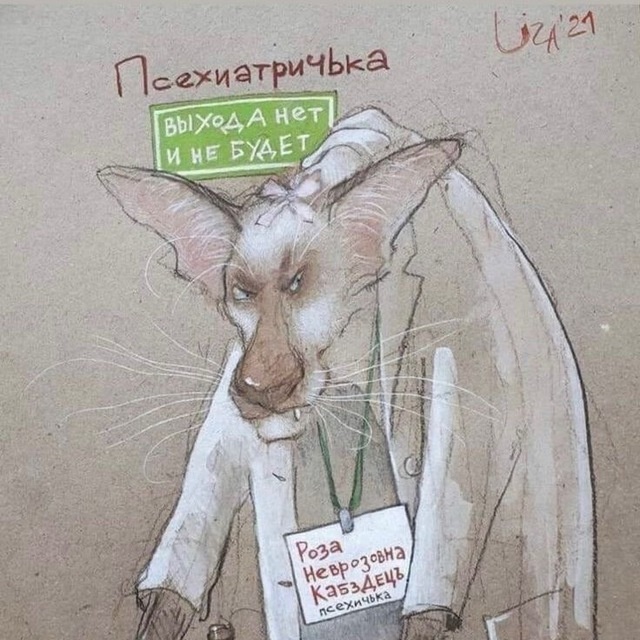 Uzя'21
Псехиатричька
ВЫХОДА НЕТ
И НЕ БУДЕТ
Роза
Неврозовна
КабзДецъ
псехичька